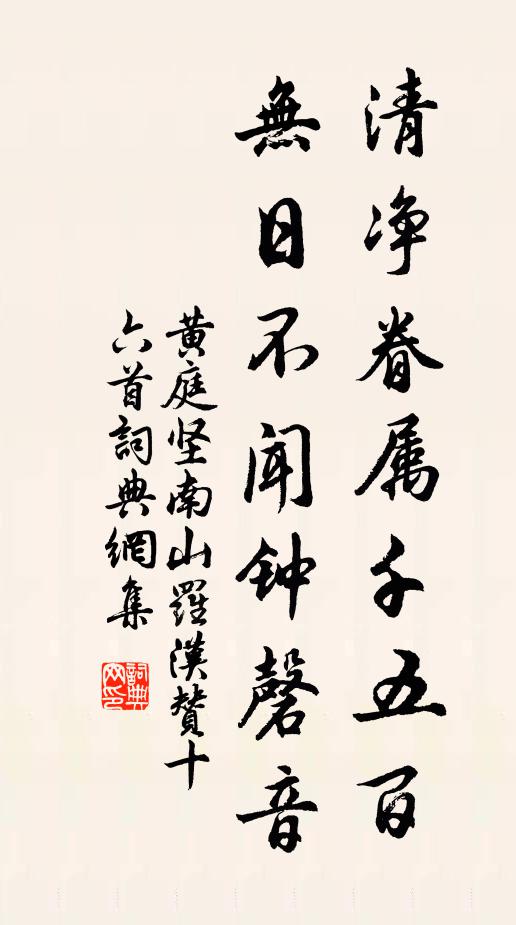 清净眷属千五百
無日不闻钟磬音
黄庭坚南山羅漢賛十
六首詞典網集
詞典
网印